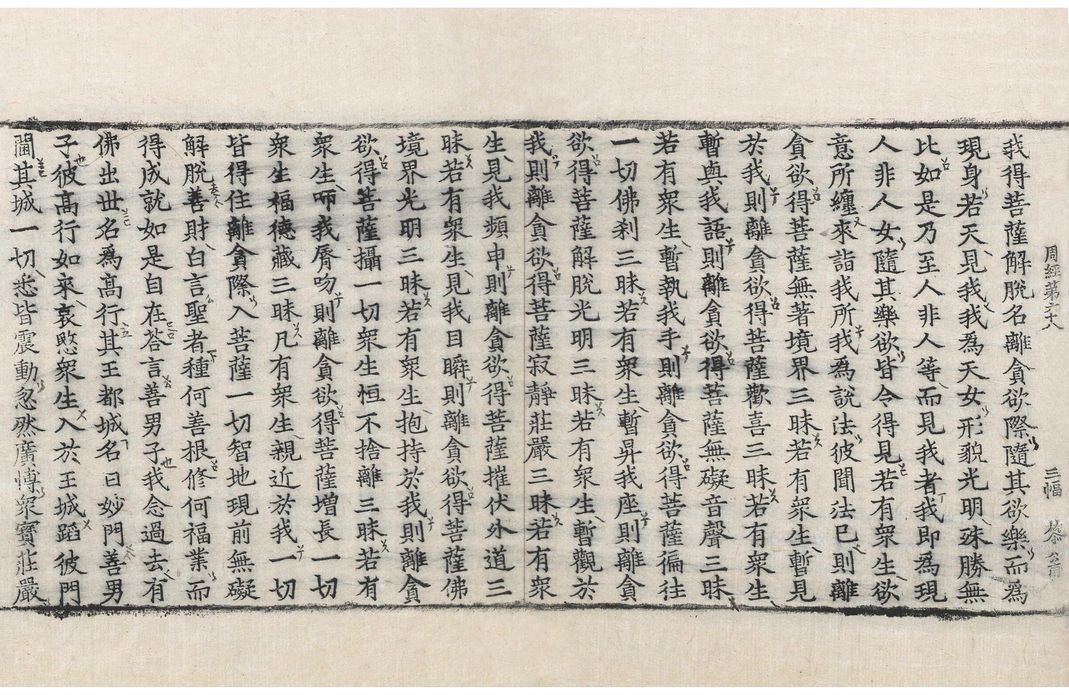 周經第六八 三幅
我得菩薩解脫名離貪欲際隨其欲樂而爲
現身若天見我我爲天女形貌光明殊勝無
比如是乃至人非人等而見我者我即爲現
人非人女隨其樂欲皆令得見若有衆生欲
意所纏來詣我所我爲說法彼聞法已則離
貪欲得菩薩無著境界三昧若有衆生暫見
於我則離貪欲得菩薩歡喜三昧若有衆生
暫與我語則離貪欲得菩薩無礙音聲三昧
若有衆生暫執我手則離貪欲得菩薩徧往
一切佛刹三昧若有衆生暫昇我座則離貪
欲得菩薩解脫光明三昧若有衆生暫觀於
我則離貪欲得菩薩寂靜莊嚴三昧若有衆
生見我頻申則離貪欲得菩薩摧伏外道三
昧若有衆生見我目瞬則離貪欲得菩薩佛
境界光明三昧若有衆生抱持於我則離貪
欲得菩薩攝一切衆生恒不捨離三昧若有
衆生咂我脣吻則離貪欲得菩薩增長一切
衆生福德藏三昧凡有衆生親近於我一切
皆得住離貪際入菩薩一切智地現前無礙
解脫善財白言聖者種何善根修何福業而
得成就如是自在荅言善男子我念過去有
佛出世名爲高行其王都城名曰妙門善男
子彼高行如來哀愍衆生入於王城蹈彼門
閫其城一切悉皆震動忽然廣博衆寶莊嚴